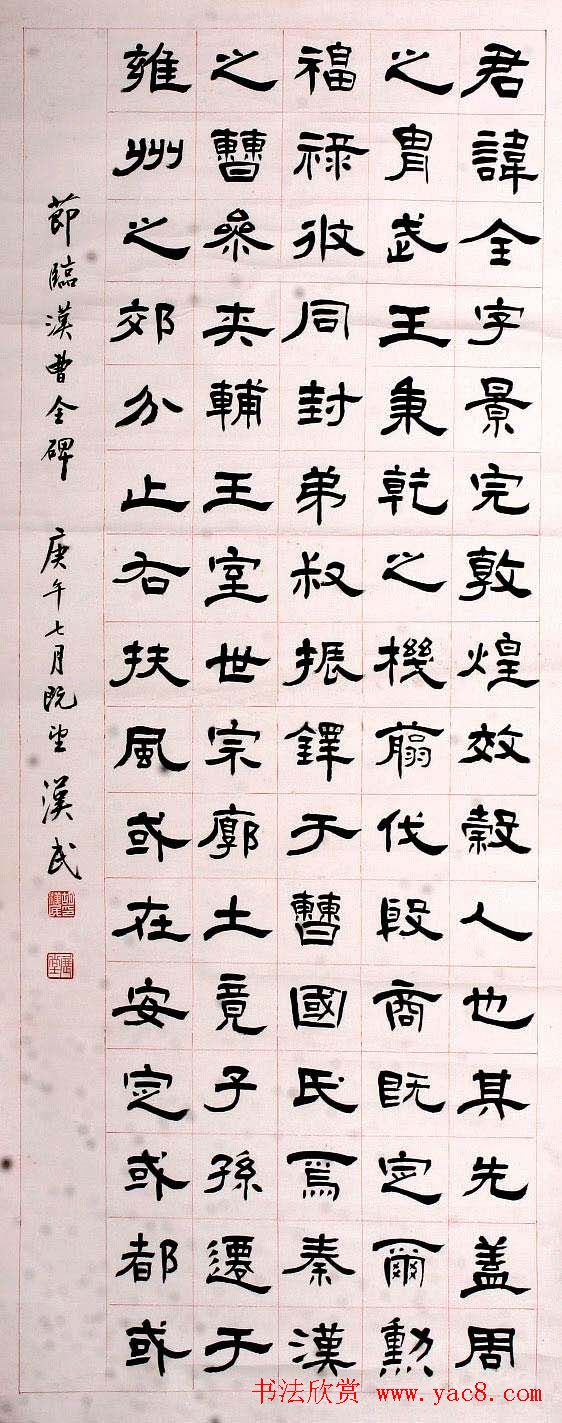 君諱全字景完敦煌效穀人也其先蓋周
之胄武王秉乾之機翦伐殷商既定爾勳
福祿攸同封弟叔振鐸于曹國氏焉秦漢
之曹參夾輔王室世宗廓土竟子孫遷于
雍州之郊分止右扶風或在安定或都或
節臨漢曹全碑 庚午七月既望 漢民
书法欣赏 www.yac8.com